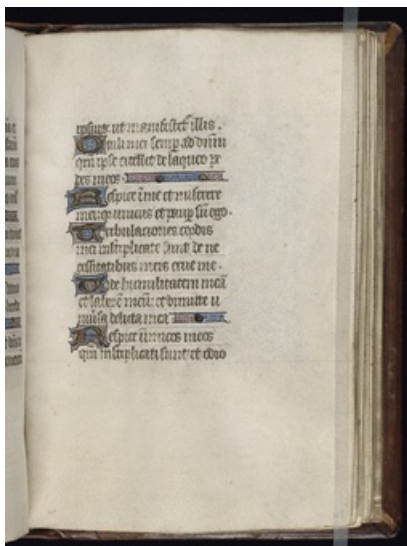 ipsius ut manifestet᷑ illis .
Oculi mei semp̱ ad dn̄m
qm̄ ip̄e euellet de laqueo pe
des meos .
Respice ī me et miserere
mei q̇ unicus et paup̱ sū ego .
Tribulationes cordis
mei multiplicate sunt de ne
cessitatibus meis erue me .
Vide humilitatem meā
et laborē meū: et dimitte u
niūsa delicta mea
Respice īimicos meos
qm̄ multiplicati sunt et odio